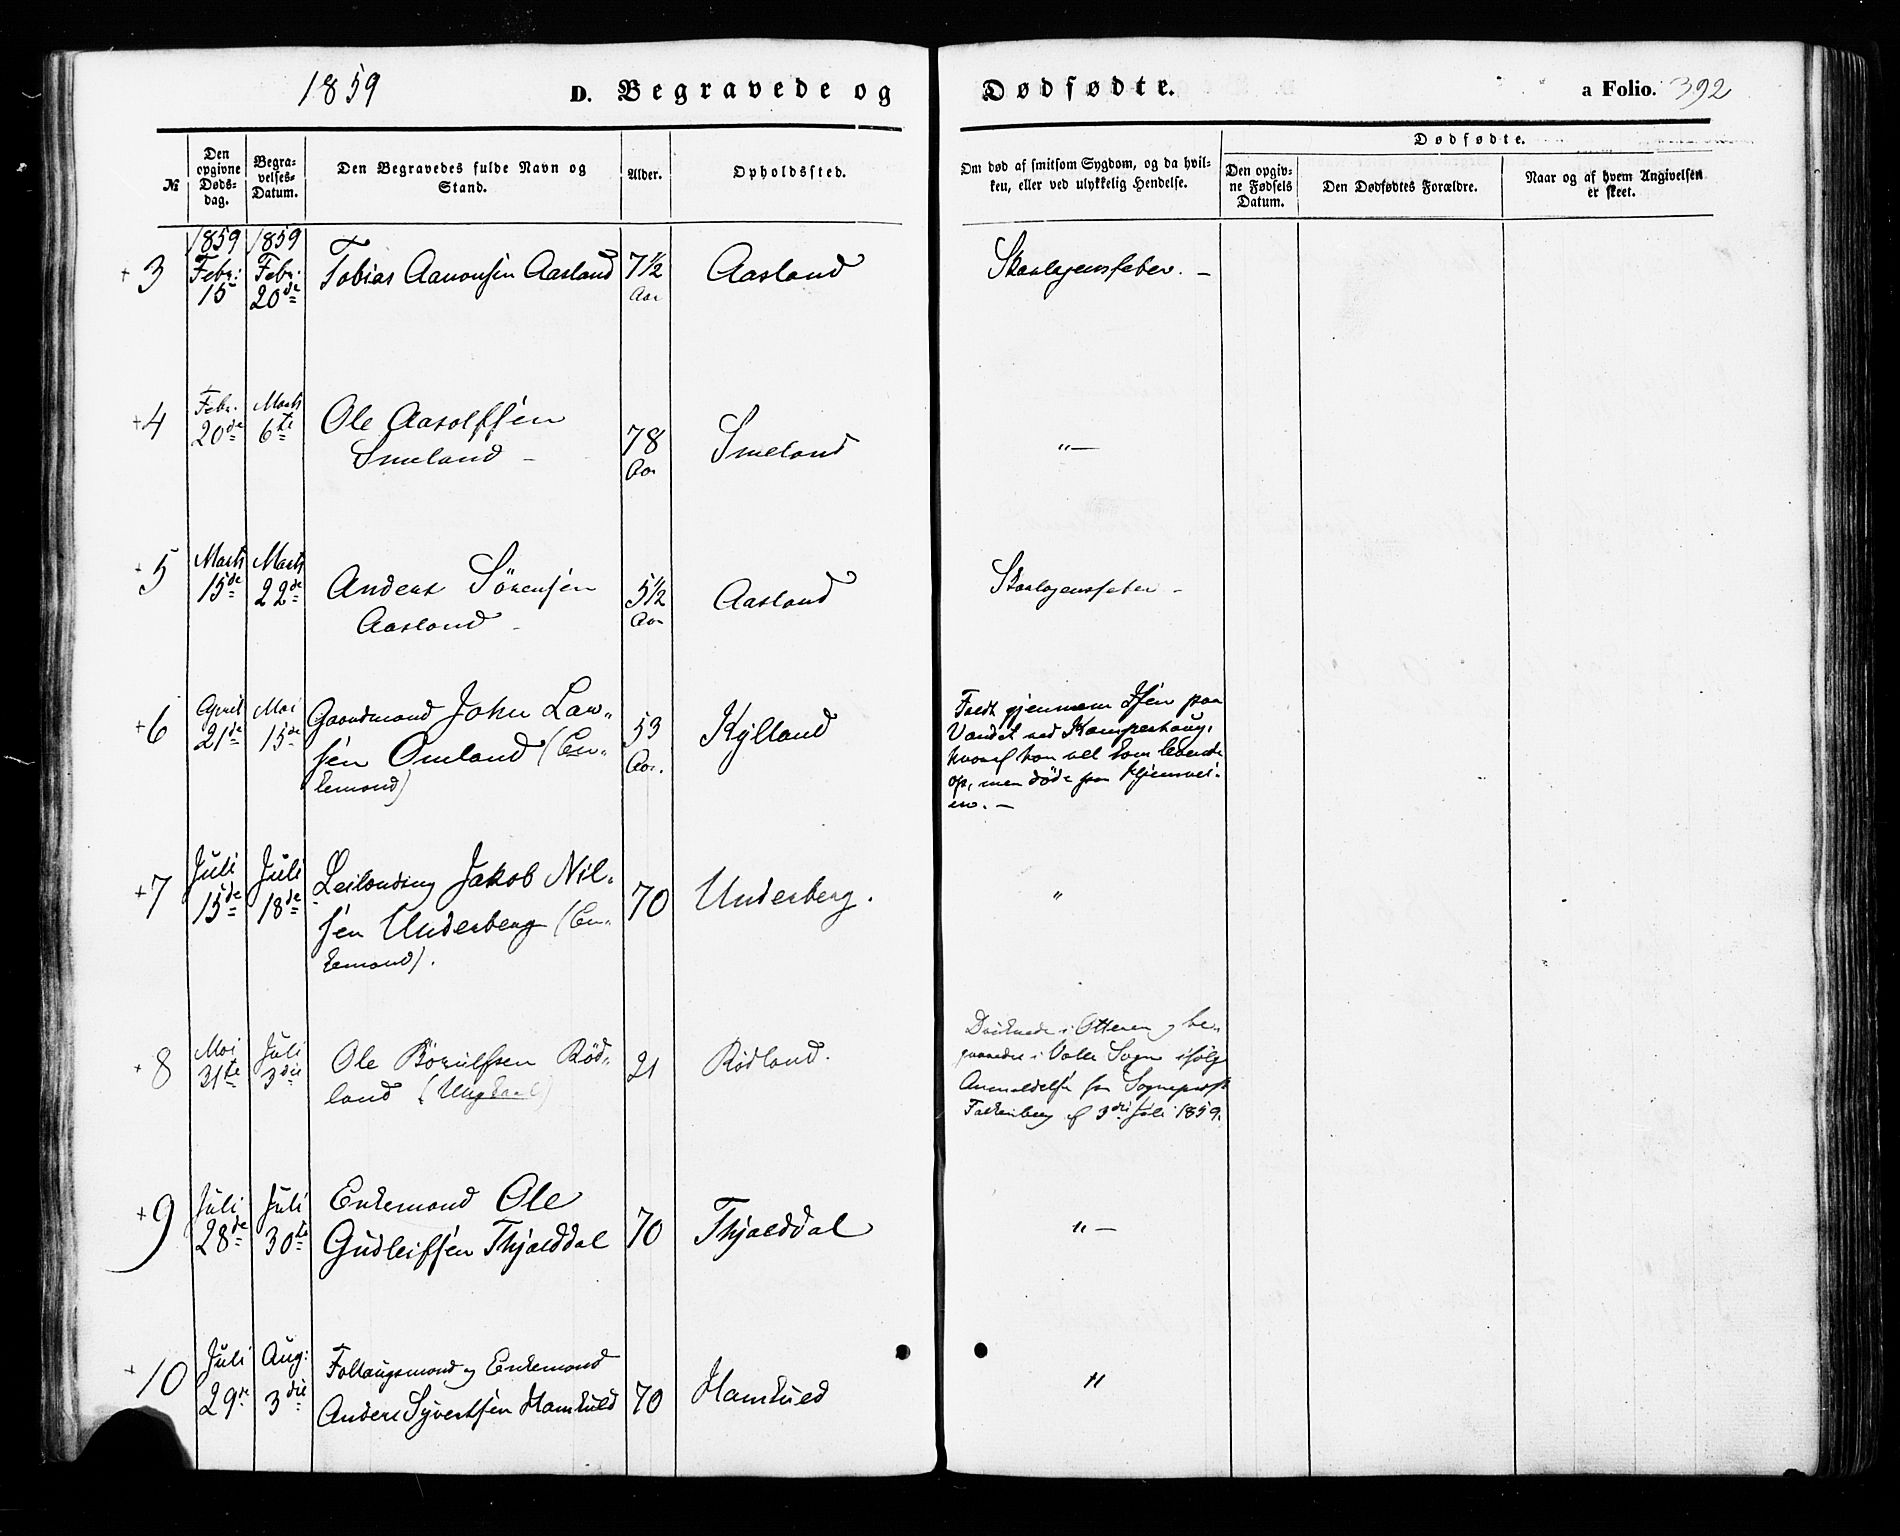 1859
D. Begravede og Dødfødte.
a Folio. 392
№
Den opgivne Døds-dag.
Begra-velses-Datum.
Den Begravedes fulde Navn og Stand.
Alder.
Opholdssted.
Om død af smitsom Sygdom, og da hvil-
ken, eller ved ulykkelig Hendelse.
Dødfødte.
Den opgiv-ne Fødsels Datum.
Den Dødfødtes Forældre.
Naar og af hvem Angivelsen er skeet.
1859 1859
+ 3 Febr: 15 Febr: 20de Tobias Aanonsen Aasland 7½ Aar Aasland Skarlagensfeber. –
+ 4 Febr. 20de Marts 6te Ole Aasolfsen
Smeland – 78 Aar Smeland "–
+ 5 Marts 15de Marts 22de Anders Sörensen
Aasland – 5½ Aar Aasland Skarlagensfeber –
+ 6 April 21de Mai 15de Gaardmand John Lar-
sen Omland (En-
kemand) 53 Aar. Kylland
Faldt gjennem Isen paa
Vandet ved Kamperhaug,
hvoraf han vel kom levende
op, men döde paa Hjemvei-
en. –
+ 7 Juli 15de Juli 18de Leilænding Jakob Nil-
sen Underberg (En-
kemand). 70 Underberg. "
+ 8 Mai 31te Juli 3die Ole Börulfsen Röd-
land (Ungkarl) 21 Rödland.
Druknede i Otteren og be-
gravedes i Valle Sogn ifölge
Anmeldelse fra Sogneprest
Falkenberg af 3die Juli 1859.
+ 9 Juli 28de Juli 30te Enkemand Ole
Gudleifsen Thjælddal 70 Thjælddal " –
+ 10 Juli 29de Aug: 3die Foltaugsmand og Enkemand
Anders Syvertsen Hamkuld 70 Hamkuld "